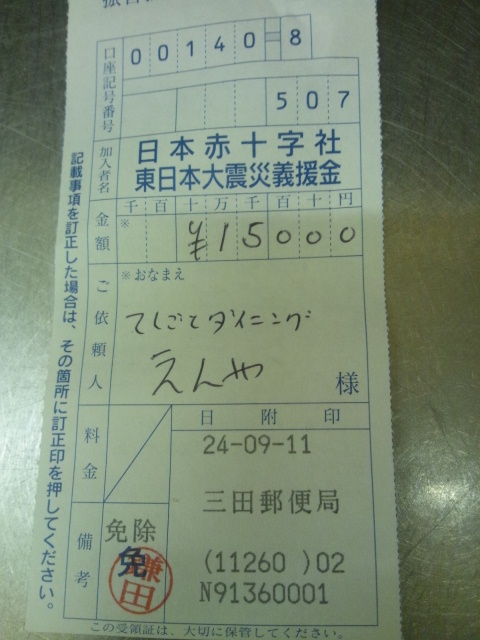 口座記号番号
00140-8
507
加入者名
日本赤十字社
東日本大震災義援金
金額
千百十万千百十円
※
¥15000
ご依頼人
※おなまえ
てしごとダイニング
えんや
様
料金
日附印
24-09-11
三田郵便局
(11260 )02
N91360001
備考
免除
免
鎌田
記載事項を訂正した場合は、その箇所に訂正印を押してください。
この受領証は、大切に保管してください。